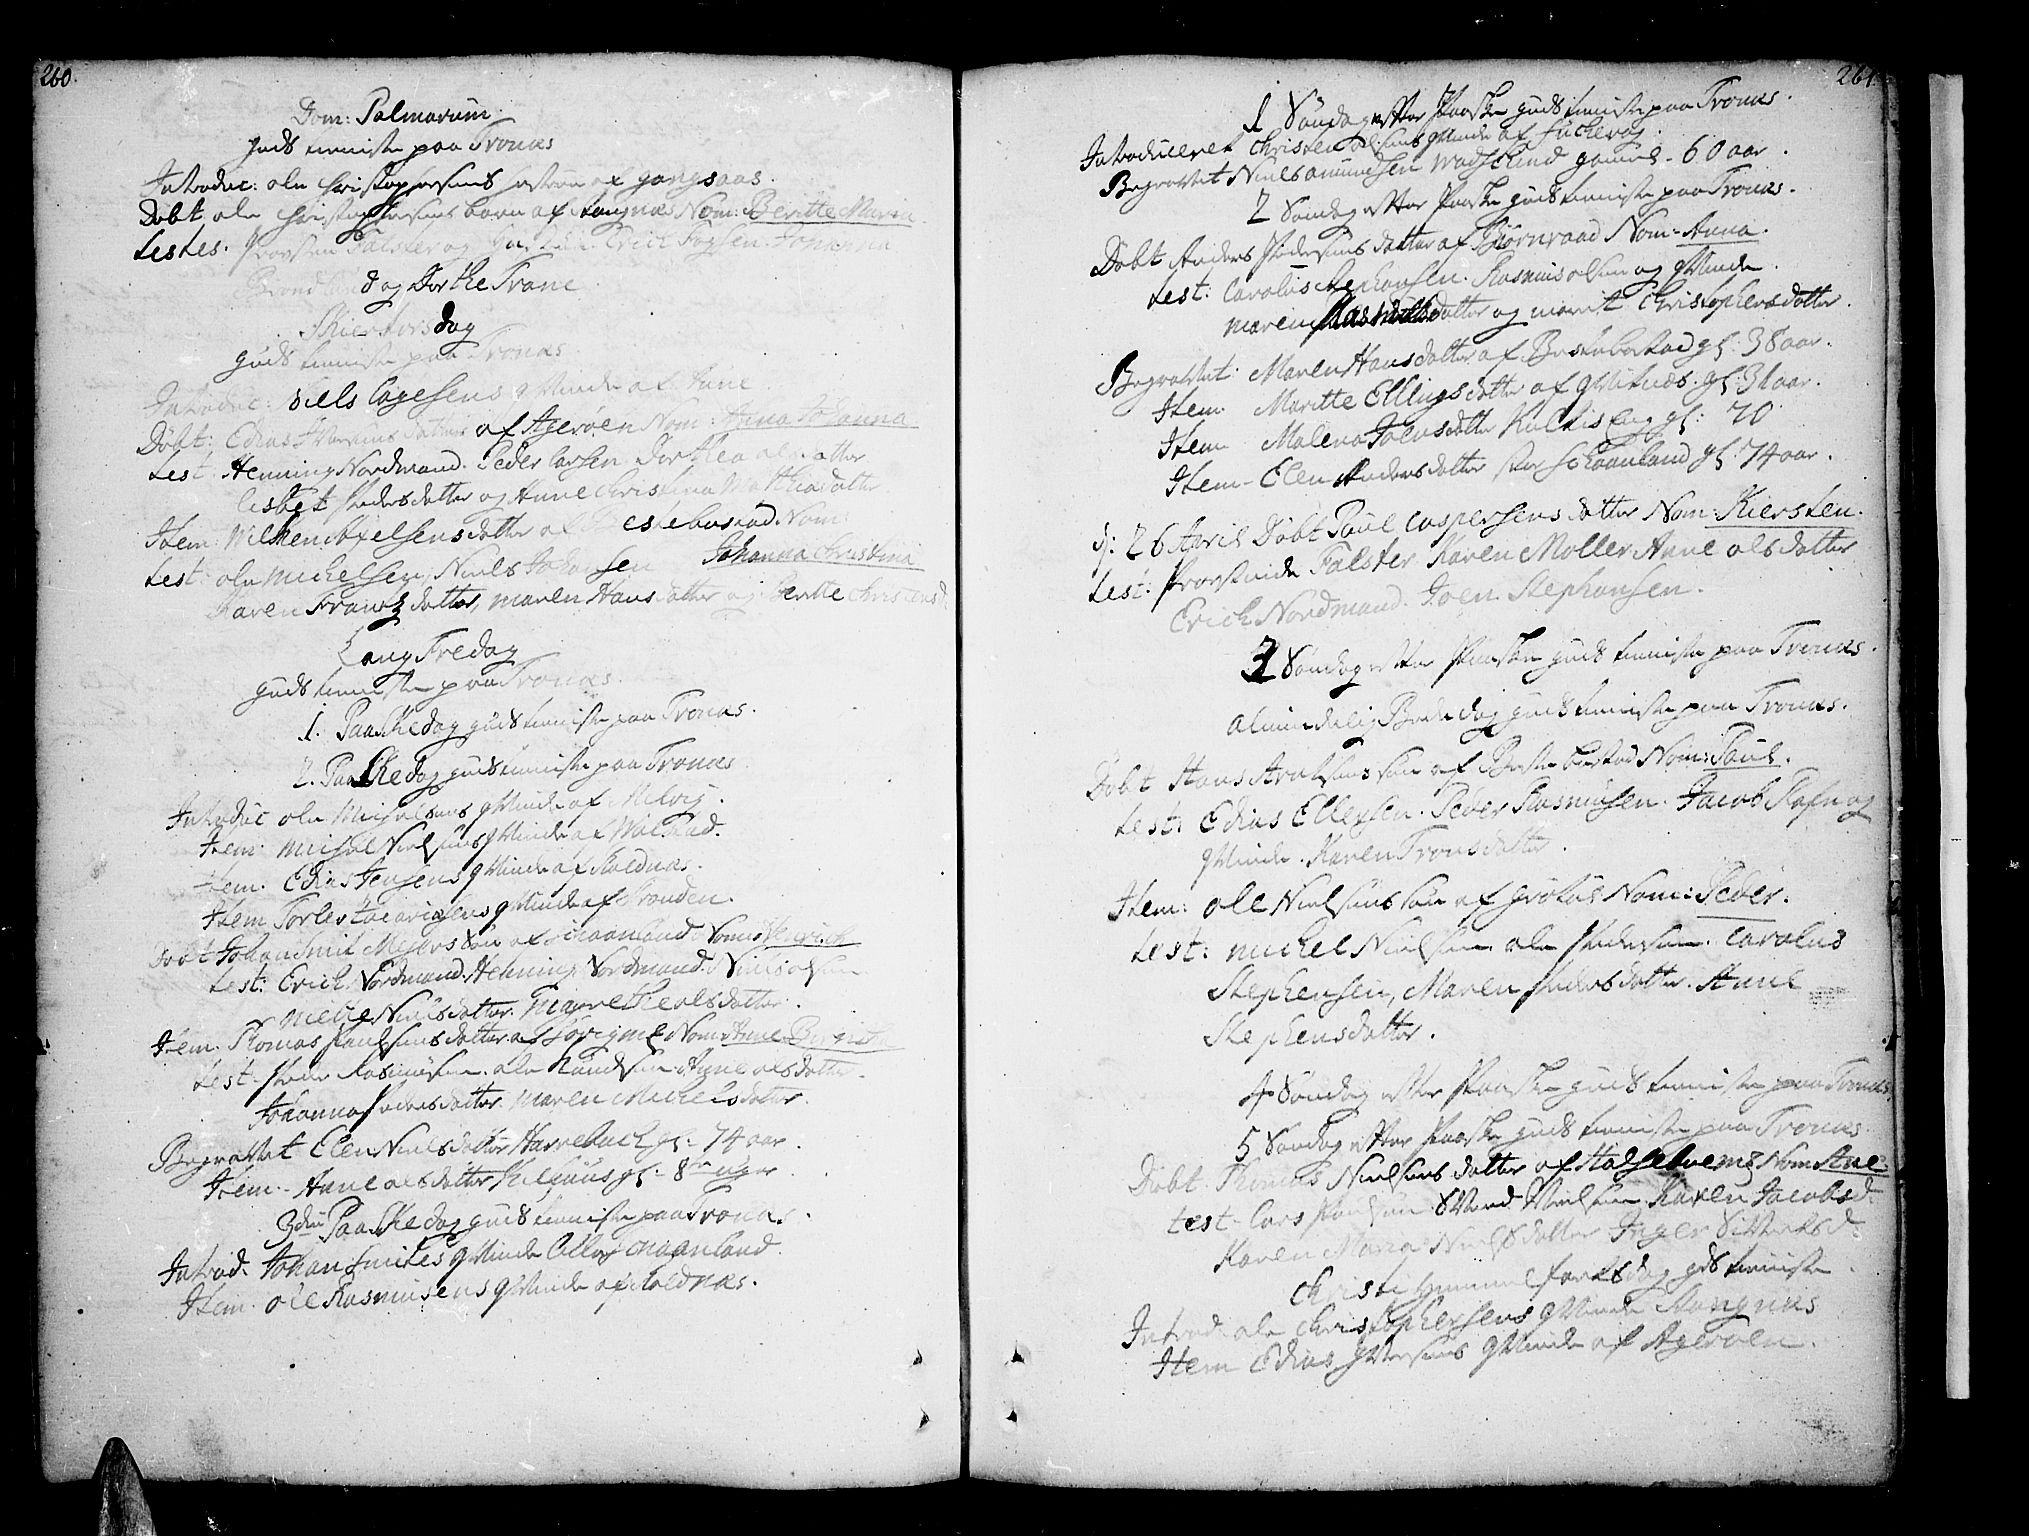 260.
Dom: Palmarum
guds tieniste paa Tronæs
Introduc: ole Christophersens hustrue af gangsaas.
Døbt ole Christophersens barn af Stangnæs Nom: Beritte Maria
testes. Provsten Falster og Erich Fogsen. Johanna
d og Dorthe Trane
Skiertorsdag
guds tieniste paa Tronæs
Introduc: Niels Lagesens qvinde af
Døbt: Edias Iversens datter af Agerøen Nom: Anna Johanna
test Henning Nordmand. Peder Larsen Dorthea olsdatter
Lisbet Pedersdatter og Anne Christina Matthiasdatter
Item: Wilken Axelsens datter af Beskebostad. Nom:
test: ole Michelsen, Niels Johansen Johanna Christina
Karen Frantzdatter, Maren Hansdatter og Beritte Christensd.
Lang Fredag
guds tieniste paa Tronæs.
1. Paaskedag guds tieniste paa Tronæs.
2. Paaskedag guds tieniste paa Tronæs
Introduc ole Michelsens qvinde af Melvig.
Item: Michel Nielsens qvinde af
Item. Edias Jensens qvinde af Koldnæs.
Item Torler Zacariasens qvinde af Tronden.
Døbt Johan Smit Mejers Søn af Skaanland Nom: Henrich
test: Erich Nordmand. Henning Nordmand. Niels olsen
Mette Nielsdatter. Marrethe olsdatter.
Item: Thomas Paulsens datter af Nom: Anne Birgita
test. Peder Rasmusen. ole Knudsen Anne olsdatter.
Johanna Pedersdatter. Maren Michelsdatter.
Begravet Elen Nielsdatter Harrebach gl: 74 aar.
Item - Anne olsdatter Kilhuus gl: 8te uger
3die Paaskedag guds tieniste paa Tronæs.
Introd. Johan Smites qvinde Skaanland.
Item. ole Rasmusens qvinde af Koldnæs.
261
1 Søndag efter Paaske guds tieniste paa Tronæs.
Introduceret Christen olsens qvinde af
Begravet Niels Amundsen Wadsund gamel - 60 aar.
2 Søndag efter Paaske guds tieniste paa Tronæs.
Døbt Anders Pedersens datter af Biørnraad Nom- Anna.
test: Carolus Stephansen. Rasmus olsen og qvinde.
maren Rasmusdatter og marit Christophersdatter.
Begravet: Maren Hansdatter af Beskebostad gl: 38 aar.
Item: Maritte Ellingsdatter af qvitnæs. gl: 31 aar.
Item Malena Joensdatter Kulkis Eng gl: 70
Item - Elen Andersdatter stor schaanland gl 74 aar.
d: 26 April Døbt Paul Caspersens datter Nom: Kiersten.
test: Provstinde Falster Karen Moller Anne olsdatter
Erich Nordmand. Joen Stephansen.
3 Søndag efter Paaske guds tieniste paa Tronæs.
almindelig Bededag guds tieniste paa Tronæs.
Døbt Hans Arntsens søn af Beskebostad Nom: Paul.
test: Edias Ellefsen. Peder Rasmusen. Jacob Rafn og
qvinde. Karen Tronsdatter.
Item: ole Nielsens søn af Nom: Peder.
test: michel Nielsen. ole Pedersen. Carolus
Stephensen, Maren Pedersdatter. Anne
Stephensdatter.
4 Søndag efter Paaske guds tieniste paa Tronæs
5 Søndag efter Paaske guds tieniste paa Tronæs
Døbt. Thomas Nielsens datter af Nom Ane.
test - Lars Paulsen Siverd Nielsen Karen Jacobsd.
Karen Maria Nielsdatter Inger Sivertsd.
Christi Himmelfartsdag gds tieniste.
Introd. ole Christophersens qvinde Stangnæs
Item Edias Iversens qvinde af Agerøen.